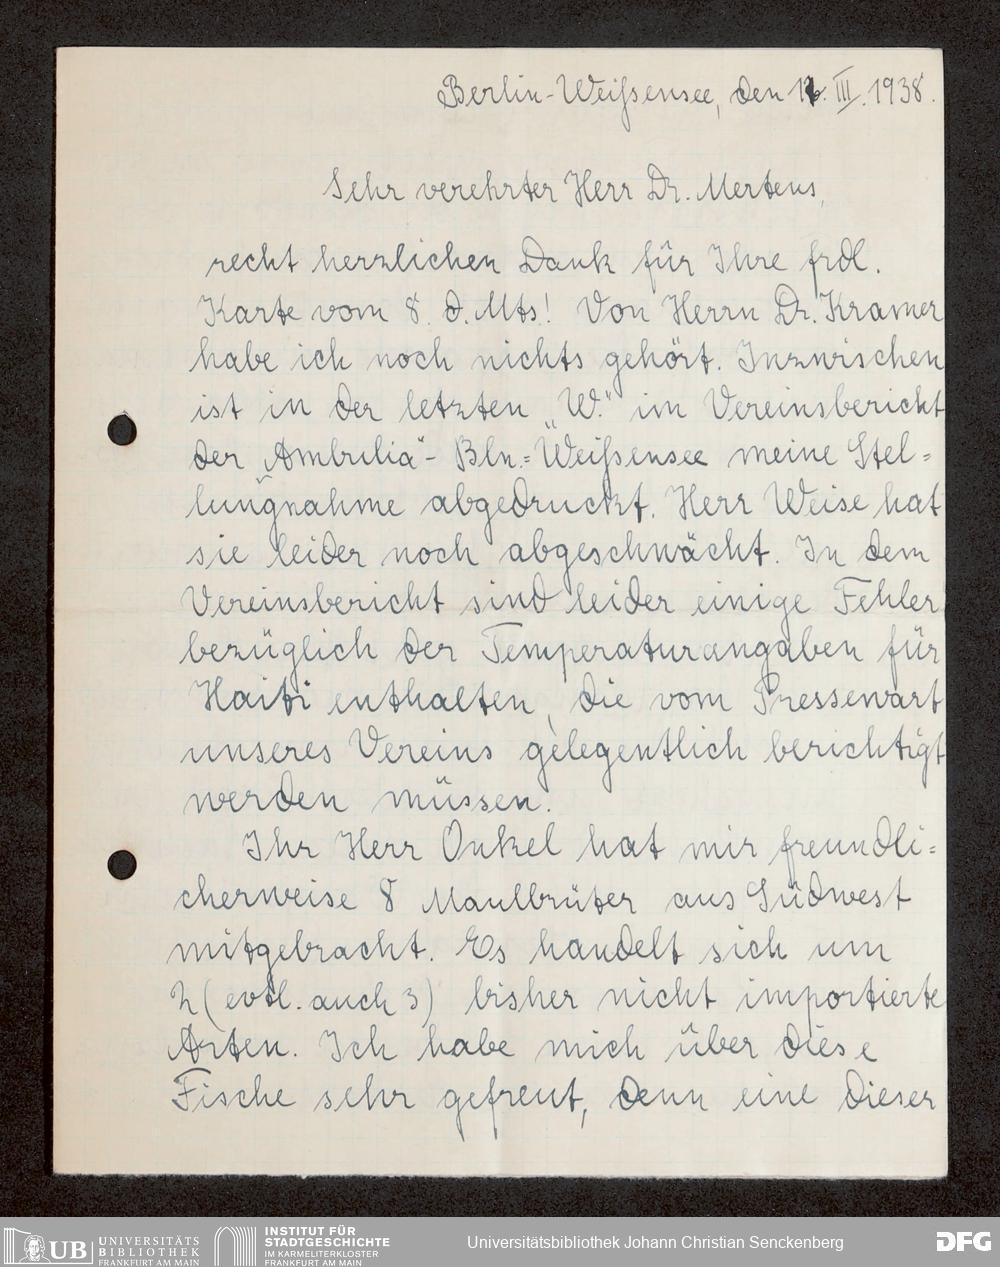 Berlin-Weißensee, den 12. III. 1938.
Sehr verehrter Herr Dr. Mertens,
recht herzlichen Dank für Ihre frdl.
Karte vom 8. d. Mts! Von Herrn Dr. Kramer
habe ich noch nichts gehört. Inzwischen
ist in der letzten „W." im Vereinsbericht
der „Ambulia"- Bln.=Weißensee meine Stel=
lungnahme abgedruckt. Herr Weise hat
sie leider noch abgeschwächt. In dem
Vereinsbericht sind leider einige Fehler
bezüglich der Temperaturangaben für
Haiti enthalten, die vom Pressewart
unseres Vereins gelegentlich berichtigt
werden müssen.
Ihr Herr Onkel hat mir freundli=
cherweise 8 Maulbrüter aus Südwest
mitgebracht. Es handelt sich um
2 (evtl. auch 3) bisher nicht importierte
Arten. Ich habe mich über diese
Fische sehr gefreut, denn eine dieser
UB UNIVERSITÄTS
BIBLIOTHEK
FRANKFURT AM MAIN
INSTITUT FÜR
STADTGESCHICHTE
IM KARMELITERKLOSTER
FRANKFURT AM MAIN
Universitätsbibliothek Johann Christian Senckenberg
DFG